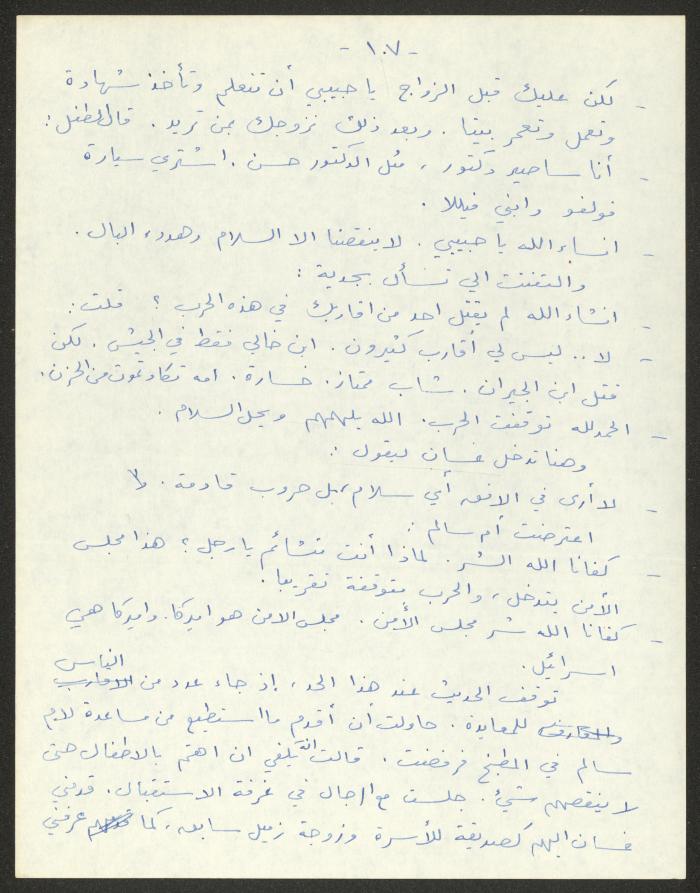 - ١٠٧ -
- لكن عليك قبل الزواج يا حبيبي أن تتعلم وتأخذ شهادة
وتعمل وتعمر بيتا . وبعد ذلك نزوجك بمن تريد . قال الطفل :
- أنا ساصير دكتور ، مثل الدكتور حسن . اشتري سيارة
فولفو وابني فيللا .
- انشاء الله يا حبيبي . لا ينقصنا الا السلام وهدوء البال .
والتفتت الي تسأل بجدية :
- انشاء الله لم يقتل احد من اقاربك في هذه الحرب ؟ قلت :
- لا .. ليس لي أقارب كثيرون . ابن خالي فقط في الجيش . لكن
قتل ابن الجيران . شاب ممتاز . خسارة . امه تكاد تموت من الحزن .
- الحمدلله توقفت الحرب . الله يلهمهم ويحل السلام .
وهنا تدخل غسان ليقول :
- لا أرى في الافق أي سلام ، بل حروب قادمة .
اعترضت أم سالم :
- كفانا الله الشر . لماذا أنت متشائم يا رجل ؟ هذا مجلس
الأمن يتدخل ، والحرب متوقفة تقريبا .
- كفانا الله شر مجلس الأمن . مجلس الامن هو اميركا . واميركا هي
اسرائيل .
توقف الحديث عند هذا الحد ، إذ جاء عدد من الاقارب الناس
للمعايدة . حاولت أن أقدم ما استطيع من مساعدة لام
سالم في المطبخ فرفضت . قالت انه يكفي ان اهتم بالاطفال حتى
لا ينقصهم شيء . جلست مع الرجال في غرفة الاستقبال . قدمني
غسان اليهم كصديقة للأسرة وزوجة زميل سابق ، كما عرفني